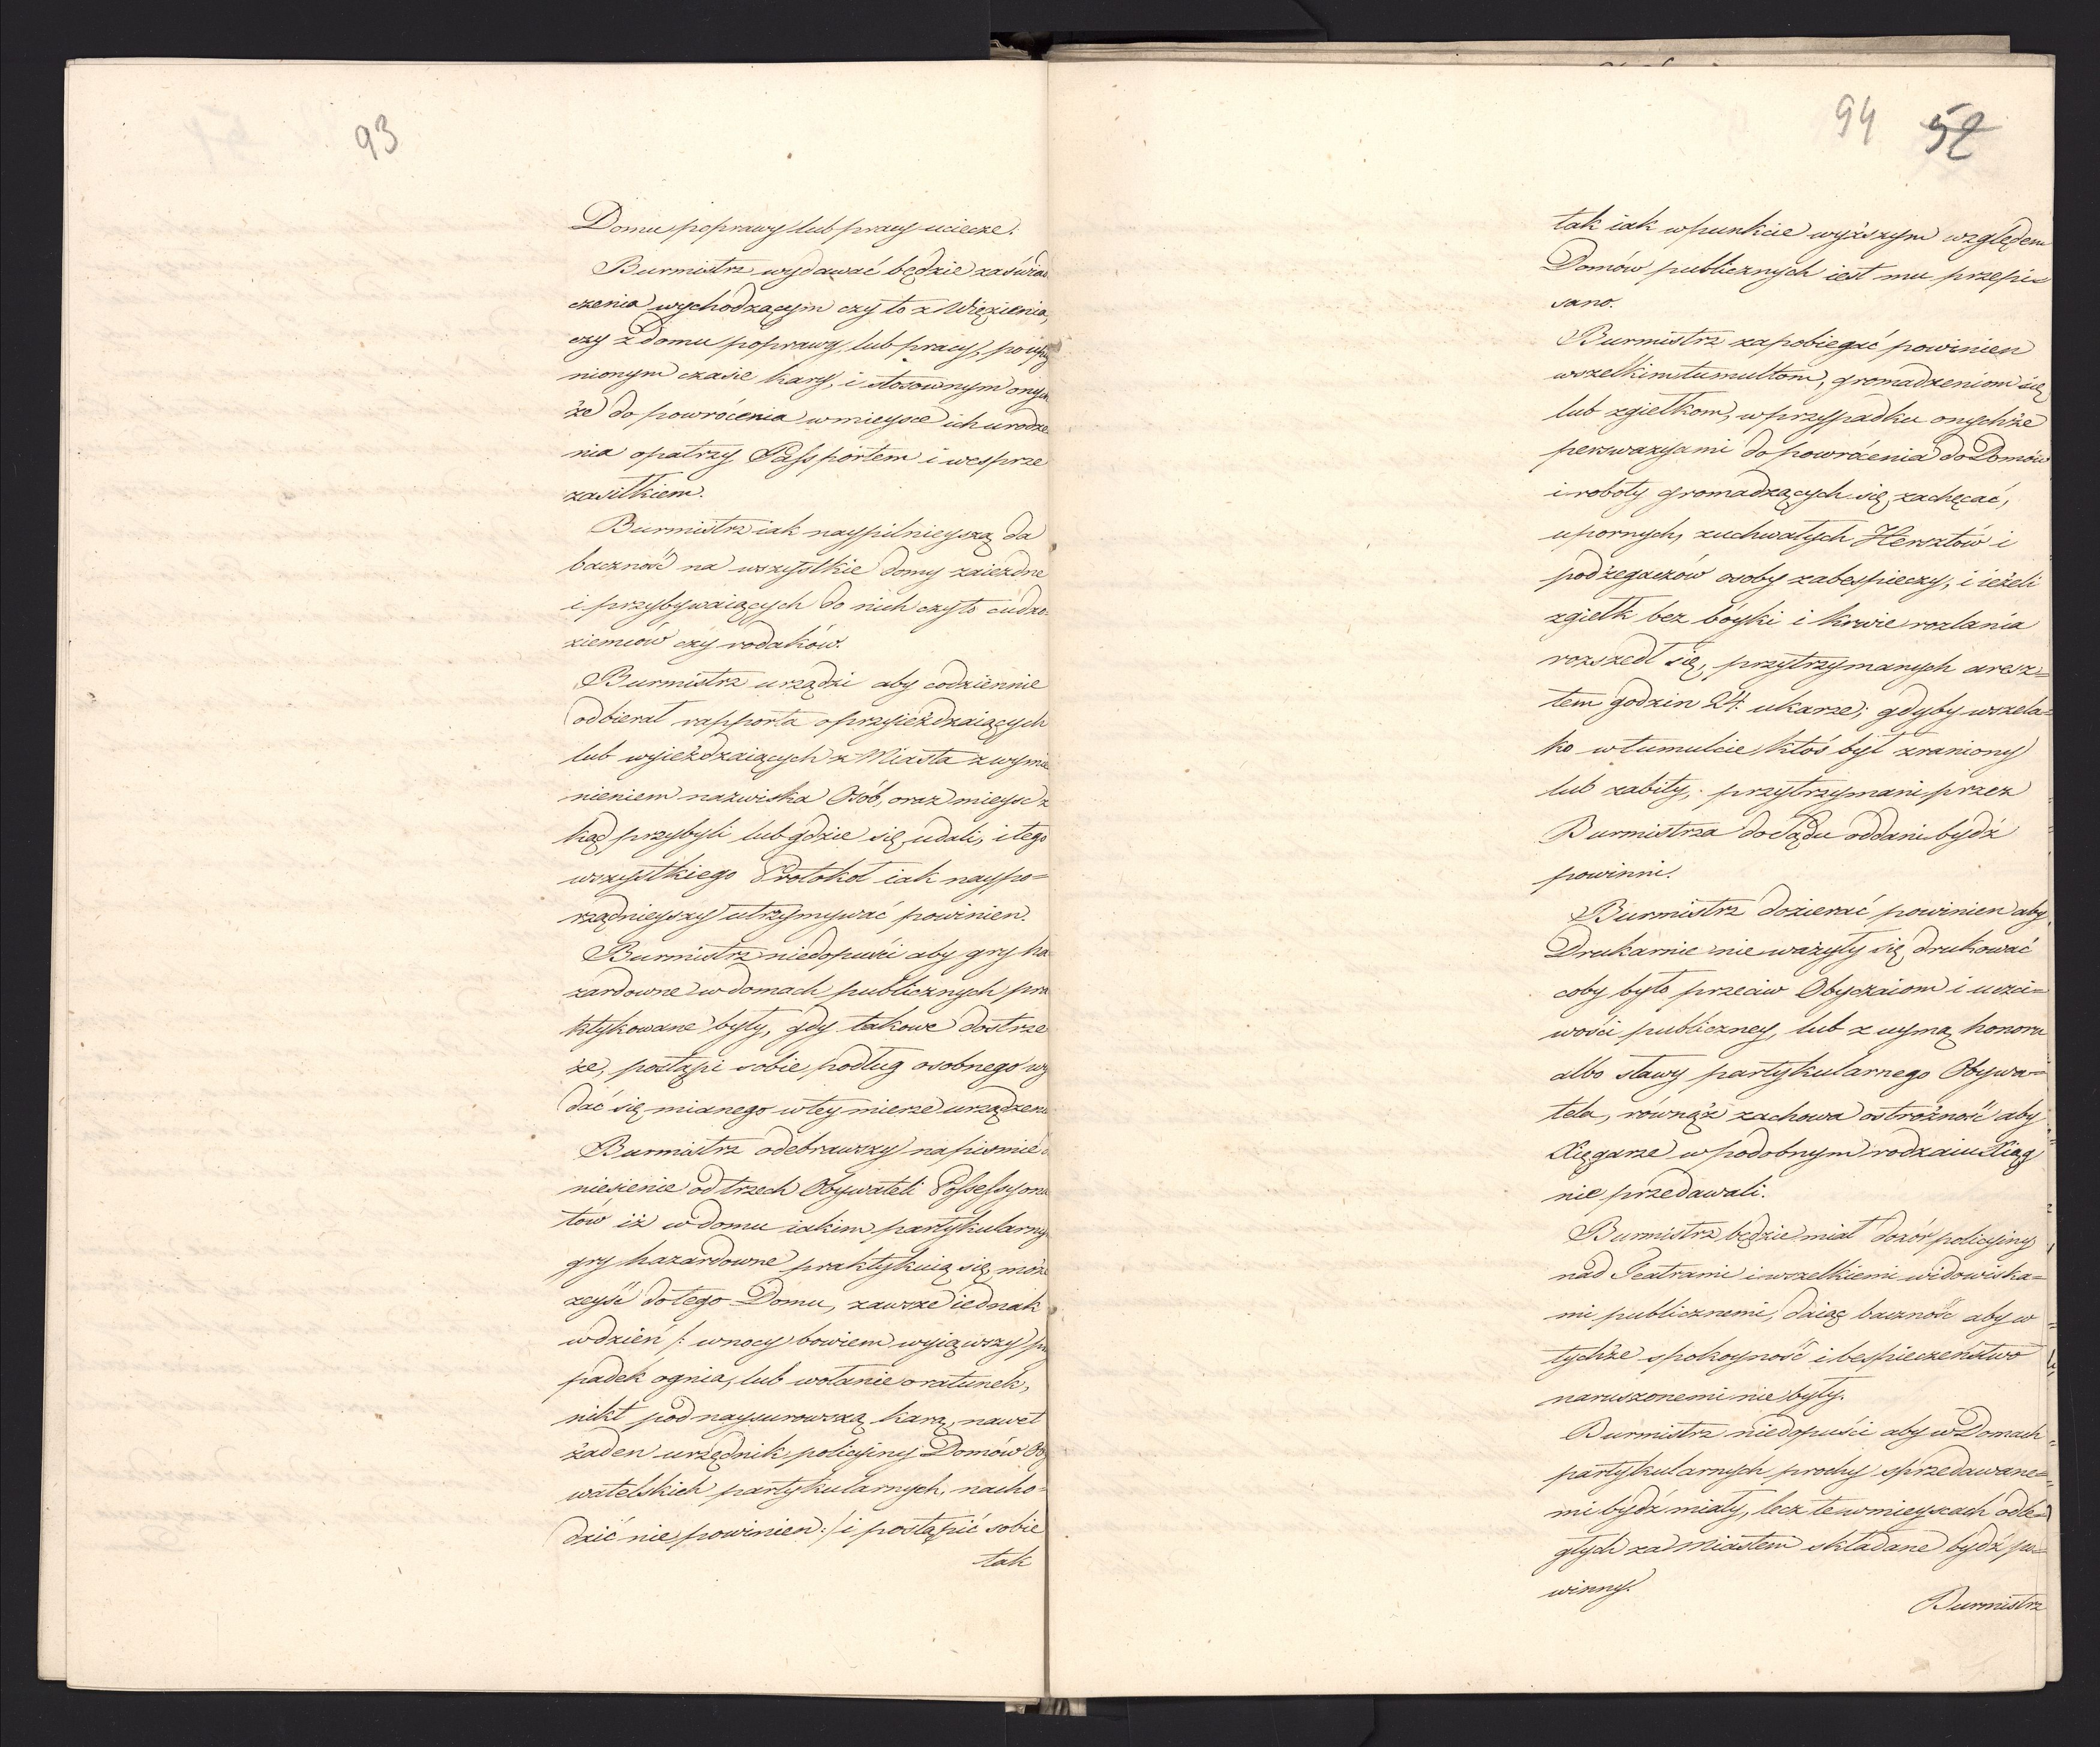 93
Domu poprawy lub pracy uciecze.
Burmistrz wydawać będzie zaświad
czenia wychodzącym czy to z Więzienia,
czy z domu poprawy, lub pracy, po upły
nionym czasie kary, i stosownym onym
że do powrócenia w mieysce ich urodze
nia opatrzy Passportem i wesprze
zasiłkiem.
Burmistrz iak naypilnieyszą da
baczność na wszystkie domy zaiezdne
i przybywaiących do nich czyto cudzo-
ziemców czy rodaków.
Burmistrz urządzi aby codziennie
odbierał rapporta o przyieżdzaiących
lub wyieżdzaiących z Miasta z wymie
nieniem nazwiska Osób, oraz mieysc z
kąd przybyli lub gdzie się udali, i tego
wszystkiego Protokoł iak naypo=
rządnieyszy utrzymywać powinien.
Burmistrz niedopuści aby gry ha
zardowne w domach publicznych pra
ktykowane były, gdy takowe dostrze
że, postąpi sobie podług osobnego wy
dać się mianego w tey mierze urządzen
Burmistrz odebrawszy na pismie
niesienie od trzech Obywateli Possessyona
tow iż w domu iakim partykularny
gry hazardowne praktykuią się, może
zeyść do tego Domu, zawsze iednak
w dzień /: w nocy bowiem wyiąwszy
padek ognia, lub wołanie o ratunek,
nikt pod naysurowszą karą, nawet
żaden urzędnik policyiny Domów Oby
watelskich partykularnych nacho-
dzić nie powinien :/ i postąpić sobie
tak
94 52
tak iak w punkcie wyższym względem
Domów publicznych iest mu przepi=
sano.
Burmistrz zapobiegać powinien
wszelkim tumultom, gromadzeniom się,
lub zgiełkom, w przypadku onychże
perswazyami do powrócenia do Domów
i roboty gromadzących się, zachęcać,
upornych, zuchwałych Hersztów i
podżegaczów osoby zabespieczy, i ieżeli
zgiełk bez bóyki i krwie rozlania
rozszedł się, przytrzymanych aresz=
tem godzin 24. ukarze; gdyby wszela=
ko w tumulcie ktoś był zraniony
lub zabity, przytrzymani przez
Burmistrza do Sądu oddani bydź
powinni.
Burmistrz dozierać powinien aby
Drukarnie nie ważyły się drukować
coby było przeciw Obyczaiom i uczci=
wości publiczney, lub z uymą honoru
albo sławy partykularnego Obywa=
tela, równąż zachowa ostrożność aby
Xięgarze w podobnym rodzaiu Xiąg
nie przedawali.
Burmistrz będzie miał dozór policyiny
nad Teatrami i wszelkiemi widowiska=
mi publicznemi, daiąc baczność aby w
tychże spokoyność i bespieczeństwo
naruszonemi nie były.
Burmistrz niedopuści aby w Domach
partykularnych prochy sprzedawane=
mi bydź miały, lecz te w mieyscach odle=
głych za Miastem składane bydź po=
winny.
Burmistrz